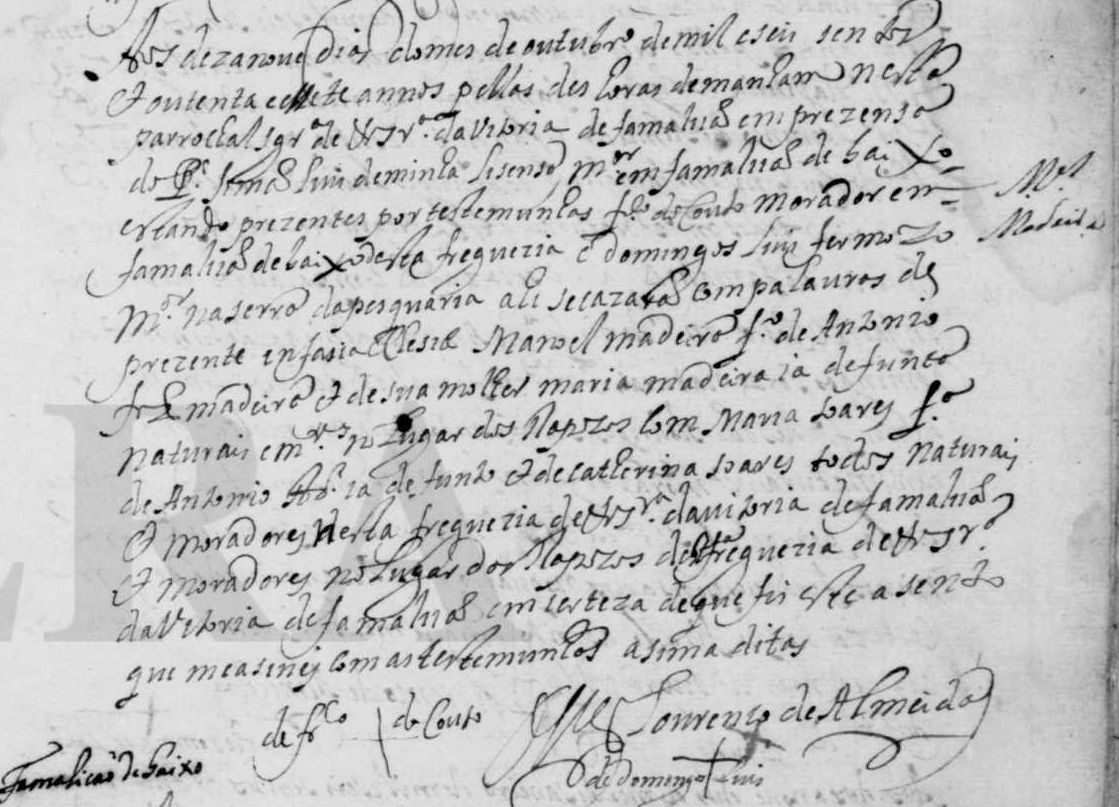 Aos dezanove dias do mes de outubro de mil e seis sentos
et outenta e sete annos pellas des horas de manham nesta
parrochal Igrª de N Srª da Vitoria de famalicaõ em prezensa
do Pe. Simaõ luis de minha lisensa, mor em famalicaõ de baixo
estando prezentes por testemunhas frco do Couto morador em
famalicaõ de baixo desta freguezia e domingos luis fermozo
mor na serra da pesquaria ali se cazaraõ com palauras de
prezente in fasia Eclesiæ Manoel madeira fo de Antonio
frz madeira et de sua molher maria madeira ia defunta
naturais e mres no Lugar dos Rapozos com Maria soares fª
de Antonio ia defunto et de catherina soares todos naturais
et moradores nesta freguezia de N Srª da vitoria de famalicaõ
et moradores no Lugar dos Rapozos desta freguezia de N Srª
da Vitoria de famalicaõ em certeza de que fis este asento
que me asinej com as testemunhas asima ditas
Mel
Madeira
de frco | do Couto
Lourenso de Almeida
de domingos + luis
Famalicaõ de baixo
ERA